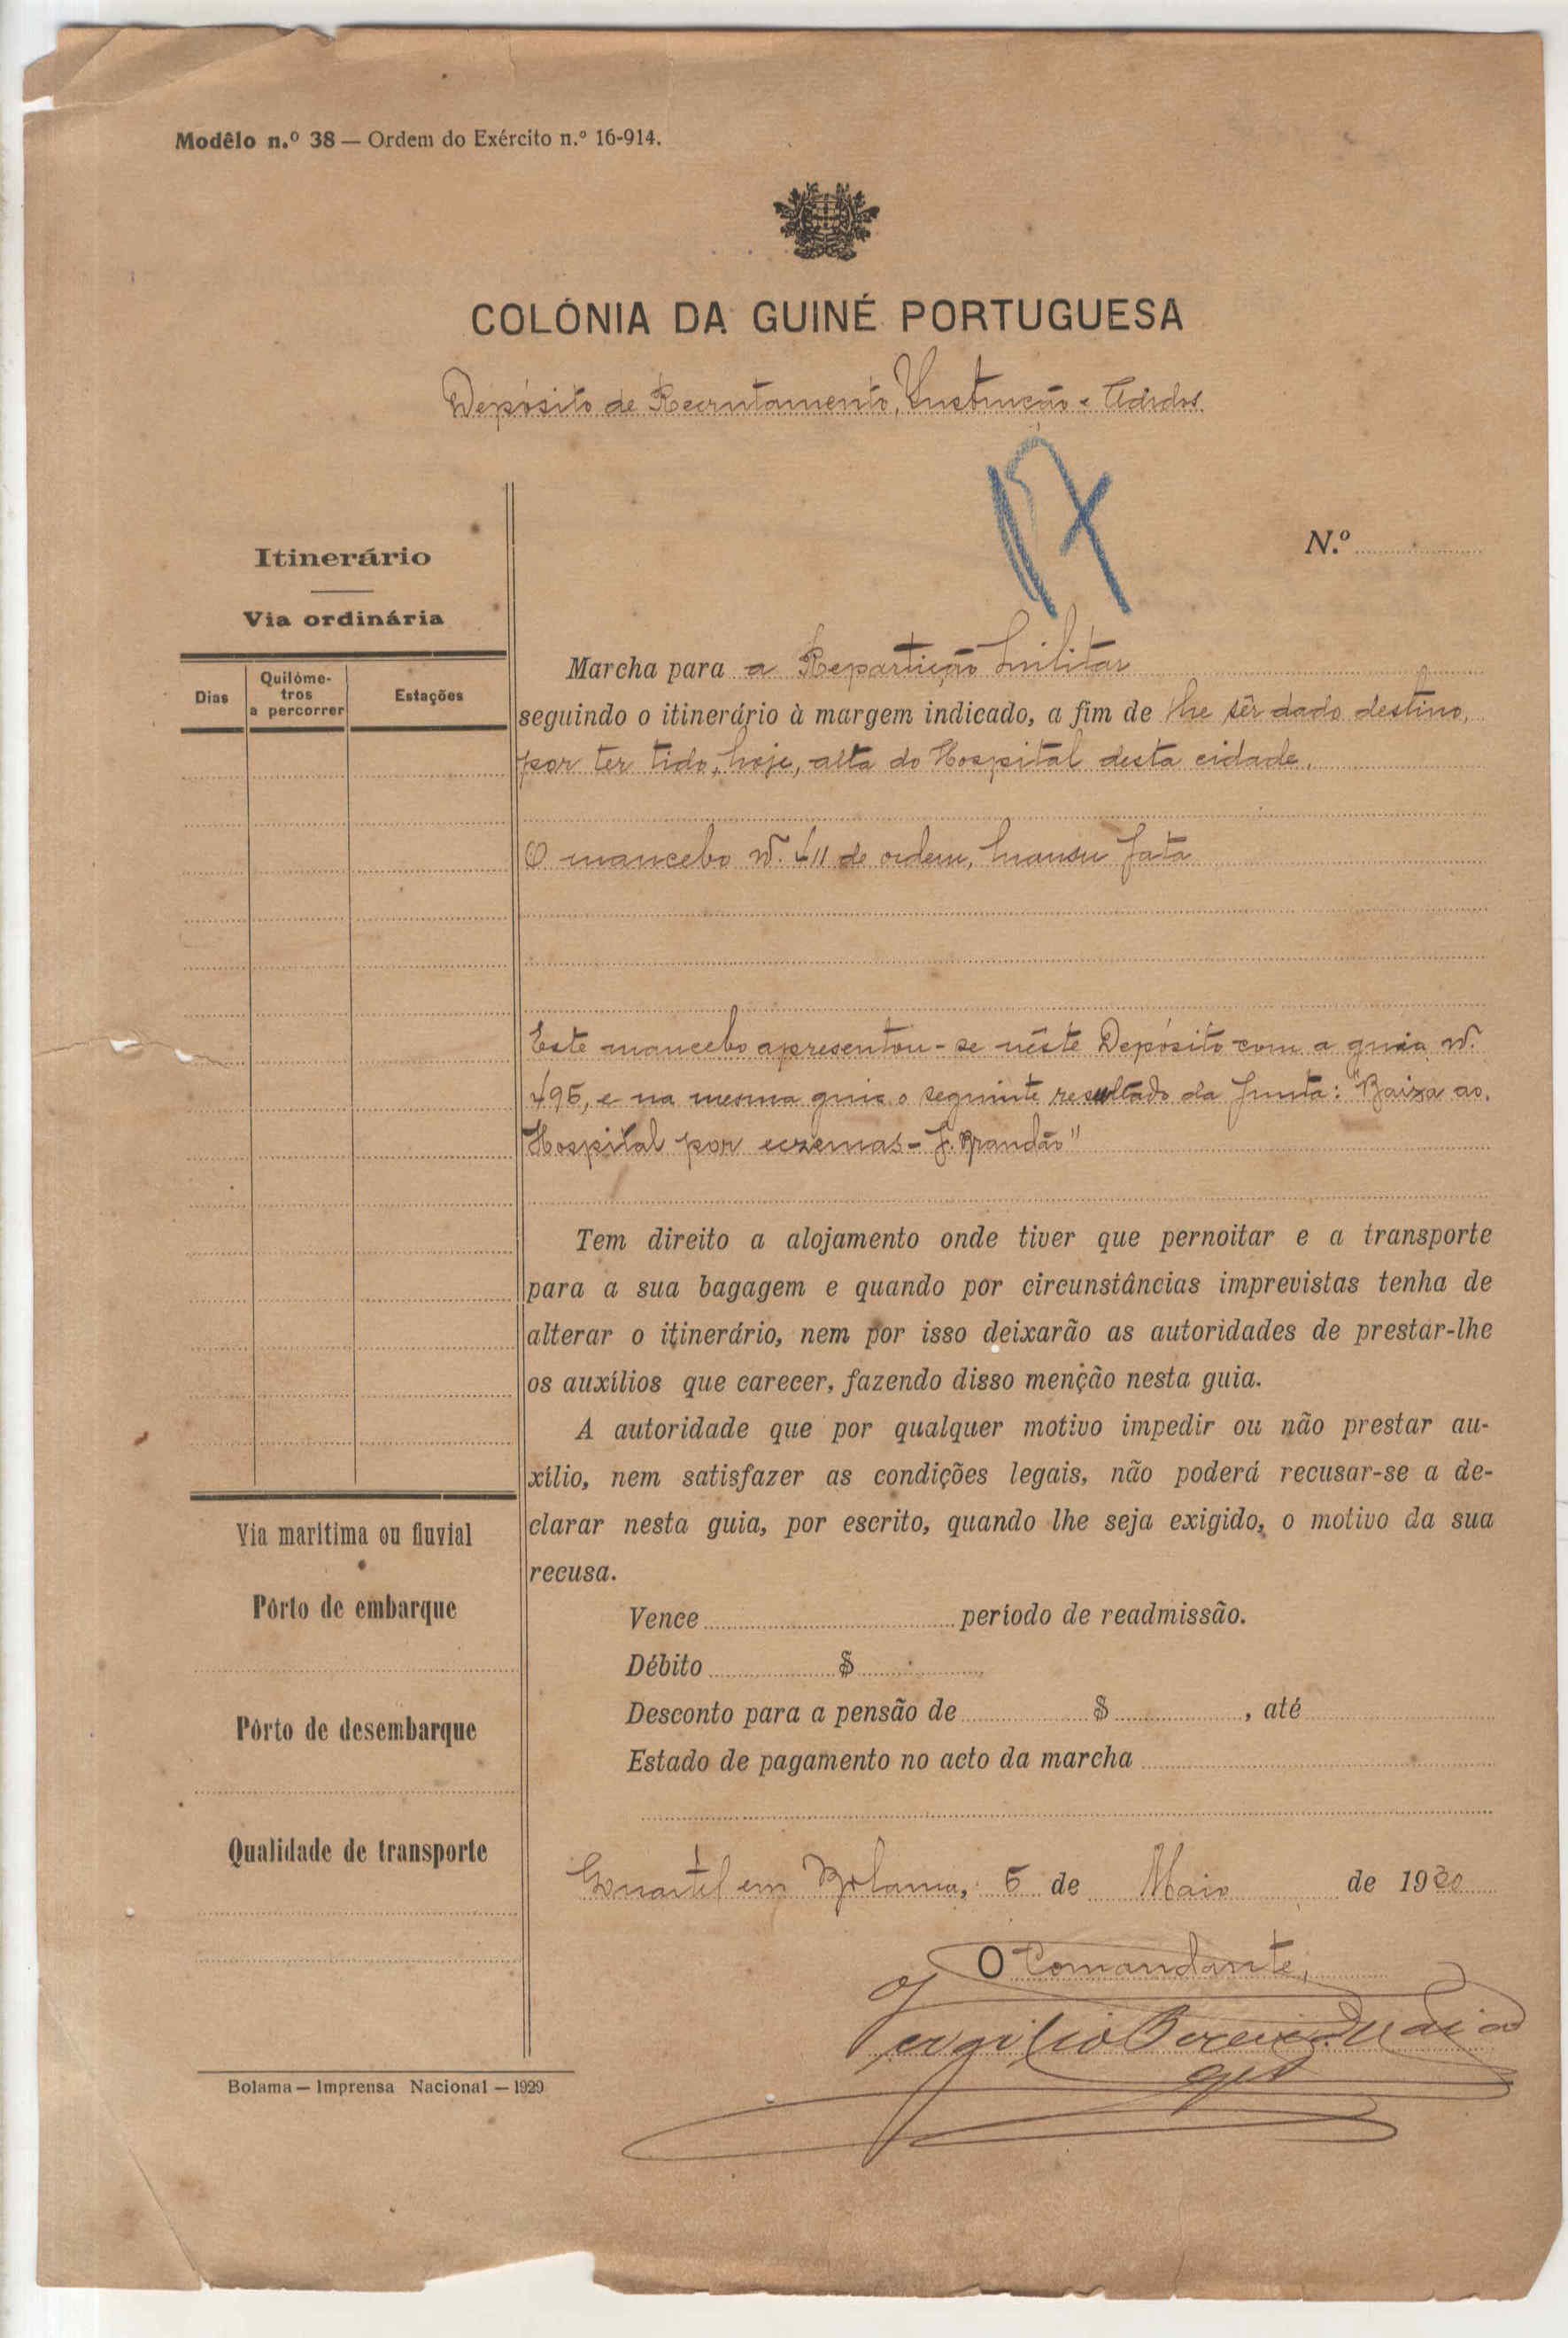 Modêlo n.º 38 — Ordem do Exército n.º 16-914.
COLÓNIA DA GUINÉ PORTUGUESA
Depósito de Recrutamento, Instrução e Adidos
17
N.º
Itinerário
Via ordinária
Dias
Quilóme-
tros
a percorrer
Estações
Marcha para a Repartição Militar
seguindo o itinerário à margem indicado, a fim de lhe sêr dado destino,
por ter tido, hoje, alta do Hospital desta cidade.
O mancebo Nº. 411 de ordem, Mansu Fata
Este mancebo apresentou-se nêste Depósito com a guia Nº.
495, e na mesma guia o seguinte resultado da Junta: "Baixa ao
Hospital por eczemas - J. Brandão"
Tem direito a alojamento onde tiver que pernoitar e a transporte
para a sua bagagem e quando por circunstâncias imprevistas tenha de
alterar o itinerário, nem por isso deixarão as autoridades de prestar-lhe
os auxílios que carecer, fazendo disso menção nesta guia.
A autoridade que por qualquer motivo impedir ou não prestar au-
xílio, nem satisfazer as condições legais, não poderá recusar-se a de-
clarar nesta guia, por escrito, quando lhe seja exigido, o motivo da sua
recusa.
Via maritima ou fluvial
Pôrto de embarque
Pôrto de desembarque
Qualidade de transporte
Vence período de readmissão.
Débito $
Desconto para a pensão de $ , até
Estado de pagamento no acto da marcha
Quartel em Bolama, 5 de Maio de 1930
O Comandante,
Vergilio Pereira
Bolama — Imprensa Nacional — 1929